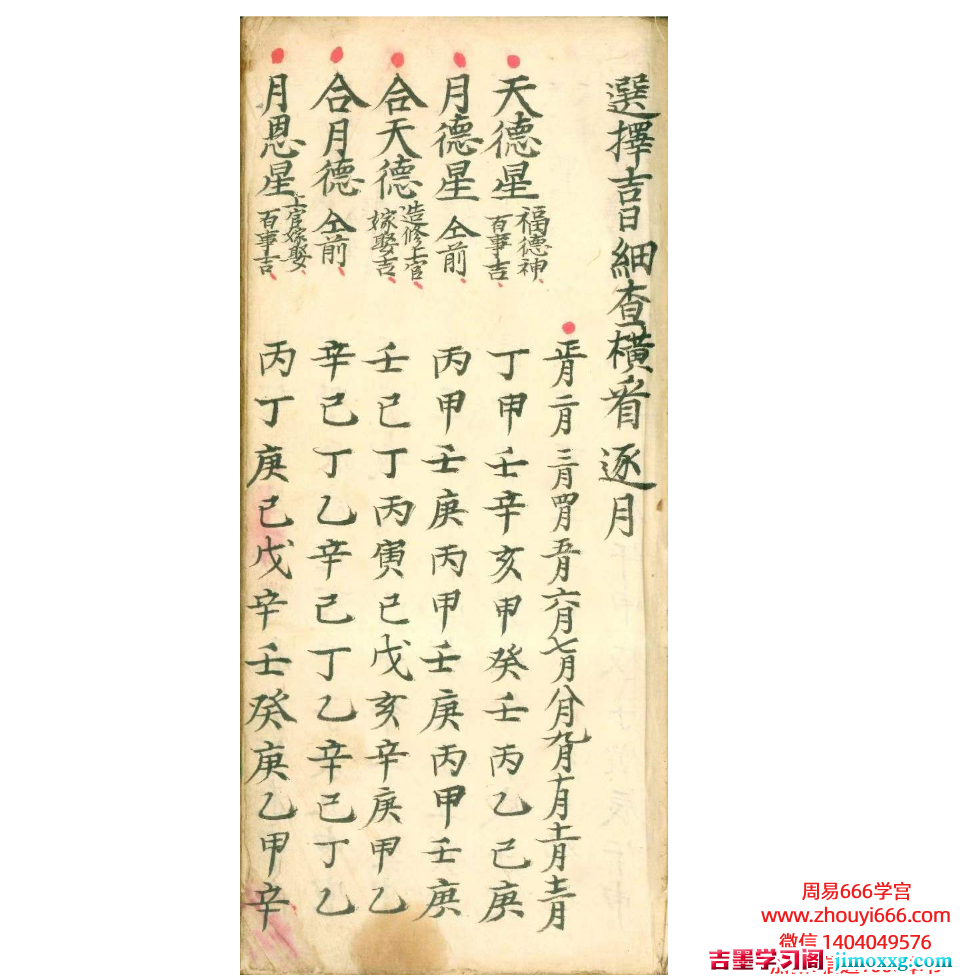 選擇吉日細查橫看逐月
正月二月三月四月五月六月七月八月九月十月十一月十二月
天德星 福德神百事吉 丁甲壬辛亥甲癸壬丙乙己庚
月德星 仝前 丙甲壬庚丙甲壬庚丙甲壬庚
合天德 造修上官嫁娶吉 壬己丁丙寅己戊亥辛庚甲乙
合月德 仝前 辛己丁乙辛己丁乙辛己丁乙
月恩星 上官嫁娶百事吉 丙丁庚己戊辛壬癸庚乙甲辛
周易666学宫
www.zhouyi666.com
微信 1404049576
吉墨学习阁 jimoxxg.com